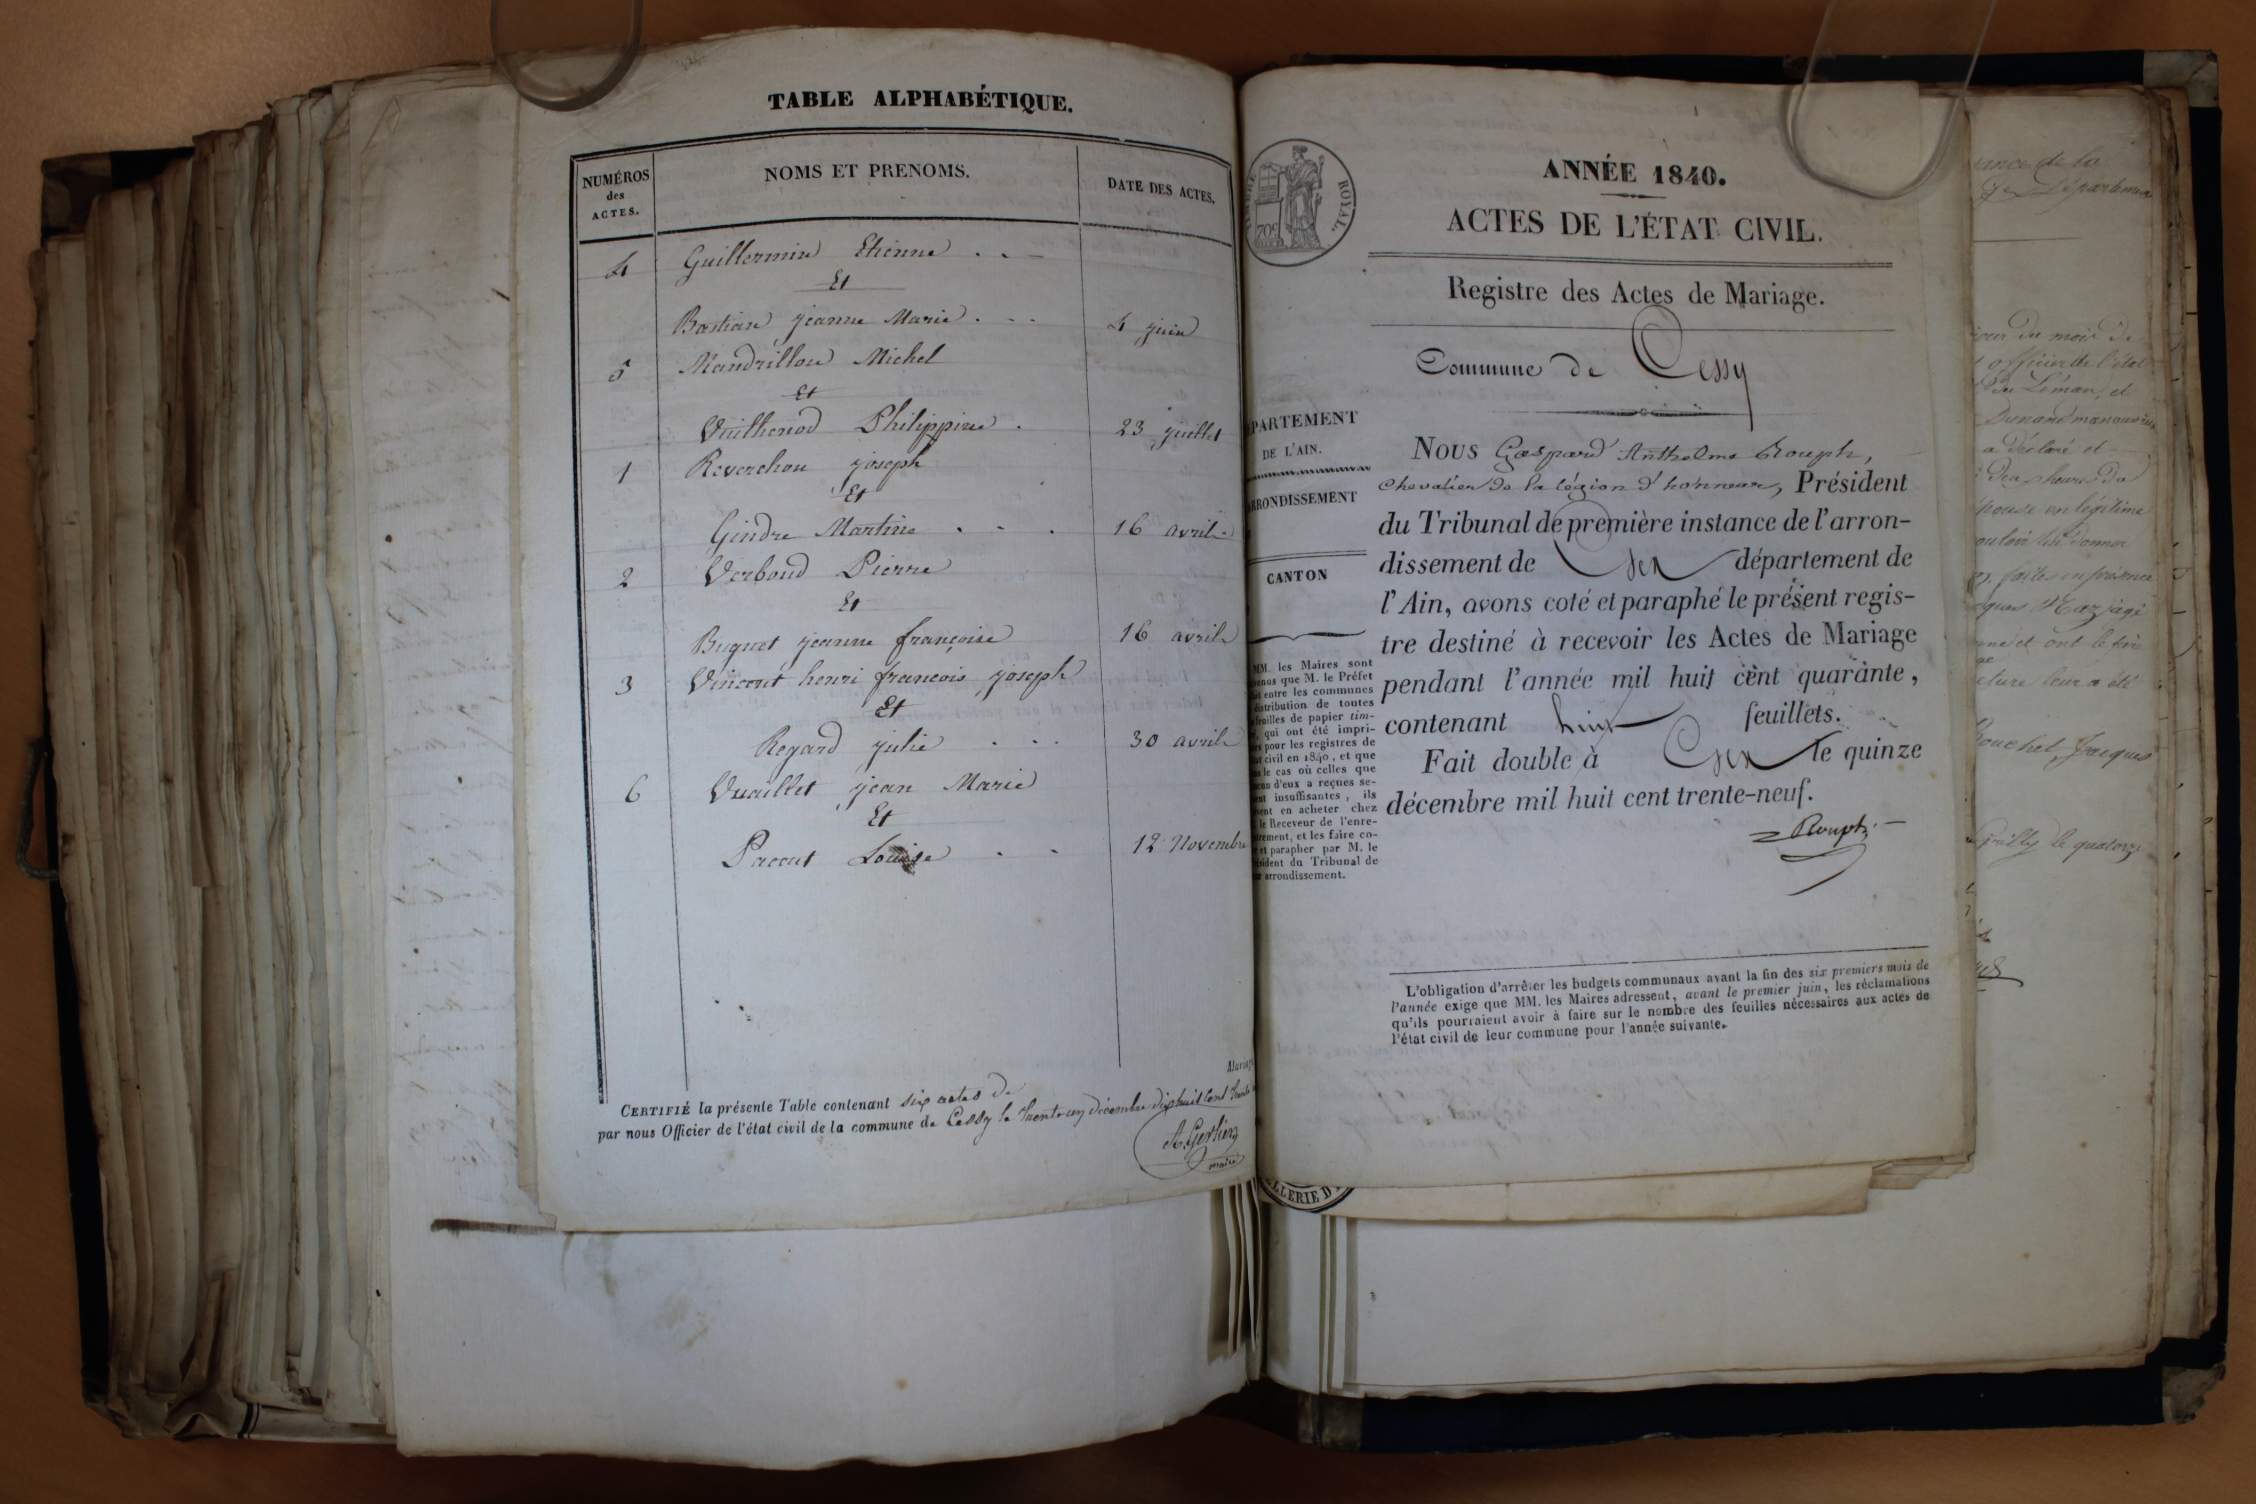 TABLE ALPHABÉTIQUE.
NUMÉROS
des
ACTES.
NOMS ET PRENOMS.
DATE DES ACTES.
4 Guillermin Etienne
Et
Bastian jeanne Marie 4 juin
5 Mandrillon Michel
Et
Vuillierod Philippine 23 juillet
1 Reverchon joseph
Et
Gindre Martine 16 avril
2 Verboud Pierre
Et
Buquet jeanne françoise 16 avril
3 Vincent henri françois joseph
Et
Regard julie 30 avril
6 Vuaillet jean Marie
Et
Paccut Louise 12 Novembre
CERTIFIÉ la présente Table contenant six actes de Mariage
par nous Officier de l'état civil de la commune de Cessy le trente un décembre dixhuit cent trente
A. Gerlier
maire
ROYAL.
70c
ANNÉE 1840.
ACTES DE L'ÉTAT CIVIL.
Registre des Actes de Mariage.
Commune de Cessy
PARTEMENT
DE L'AIN.
RRONDISSEMENT
CANTON
MM. les Maires sont
enus que M. le Préfet
entre les communes
istribution de toutes
feuilles de papier tim-
, qui ont été impri-
pour les registres de
civil en 1840, et que
le cas où celles que
d'eux a reçues se-
insuffisantes, ils
en acheter chez
le Receveur de l'enre-
rement, et les faire co-
et parapher par M. le
ident du Tribunal de
arrondissement.
NOUS Gaspard Anthelme Rouph,
chevalier de la légion d'honneur, Président
du Tribunal de première instance de l'arron-
dissement de Gex département de
l'Ain, avons coté et paraphé le présent regis-
tre destiné à recevoir les Actes de Mariage
pendant l'année mil huit cent quarante,
contenant huit feuillets.
Fait double à Gex le quinze
décembre mil huit cent trente-neuf.
Rouph
L'obligation d'arrêter les budgets communaux avant la fin des six premiers mois de
l'année exige que MM. les Maires adressent, avant le premier juin, les réclamations
qu'ils pourraient avoir à faire sur le nombre des feuilles nécessaires aux actes de
l'état civil de leur commune pour l'année suivante.
LLERIE D
ance de la
Département
jour du mois de
officier de l'état
du Léman, et
Dunand manouvrier
a déclaré et
heures du
épouse en légitime
vouloir lui donner
faites en présence
et ont le père
cture leur a été
Bouchet Jacques
le quatorze